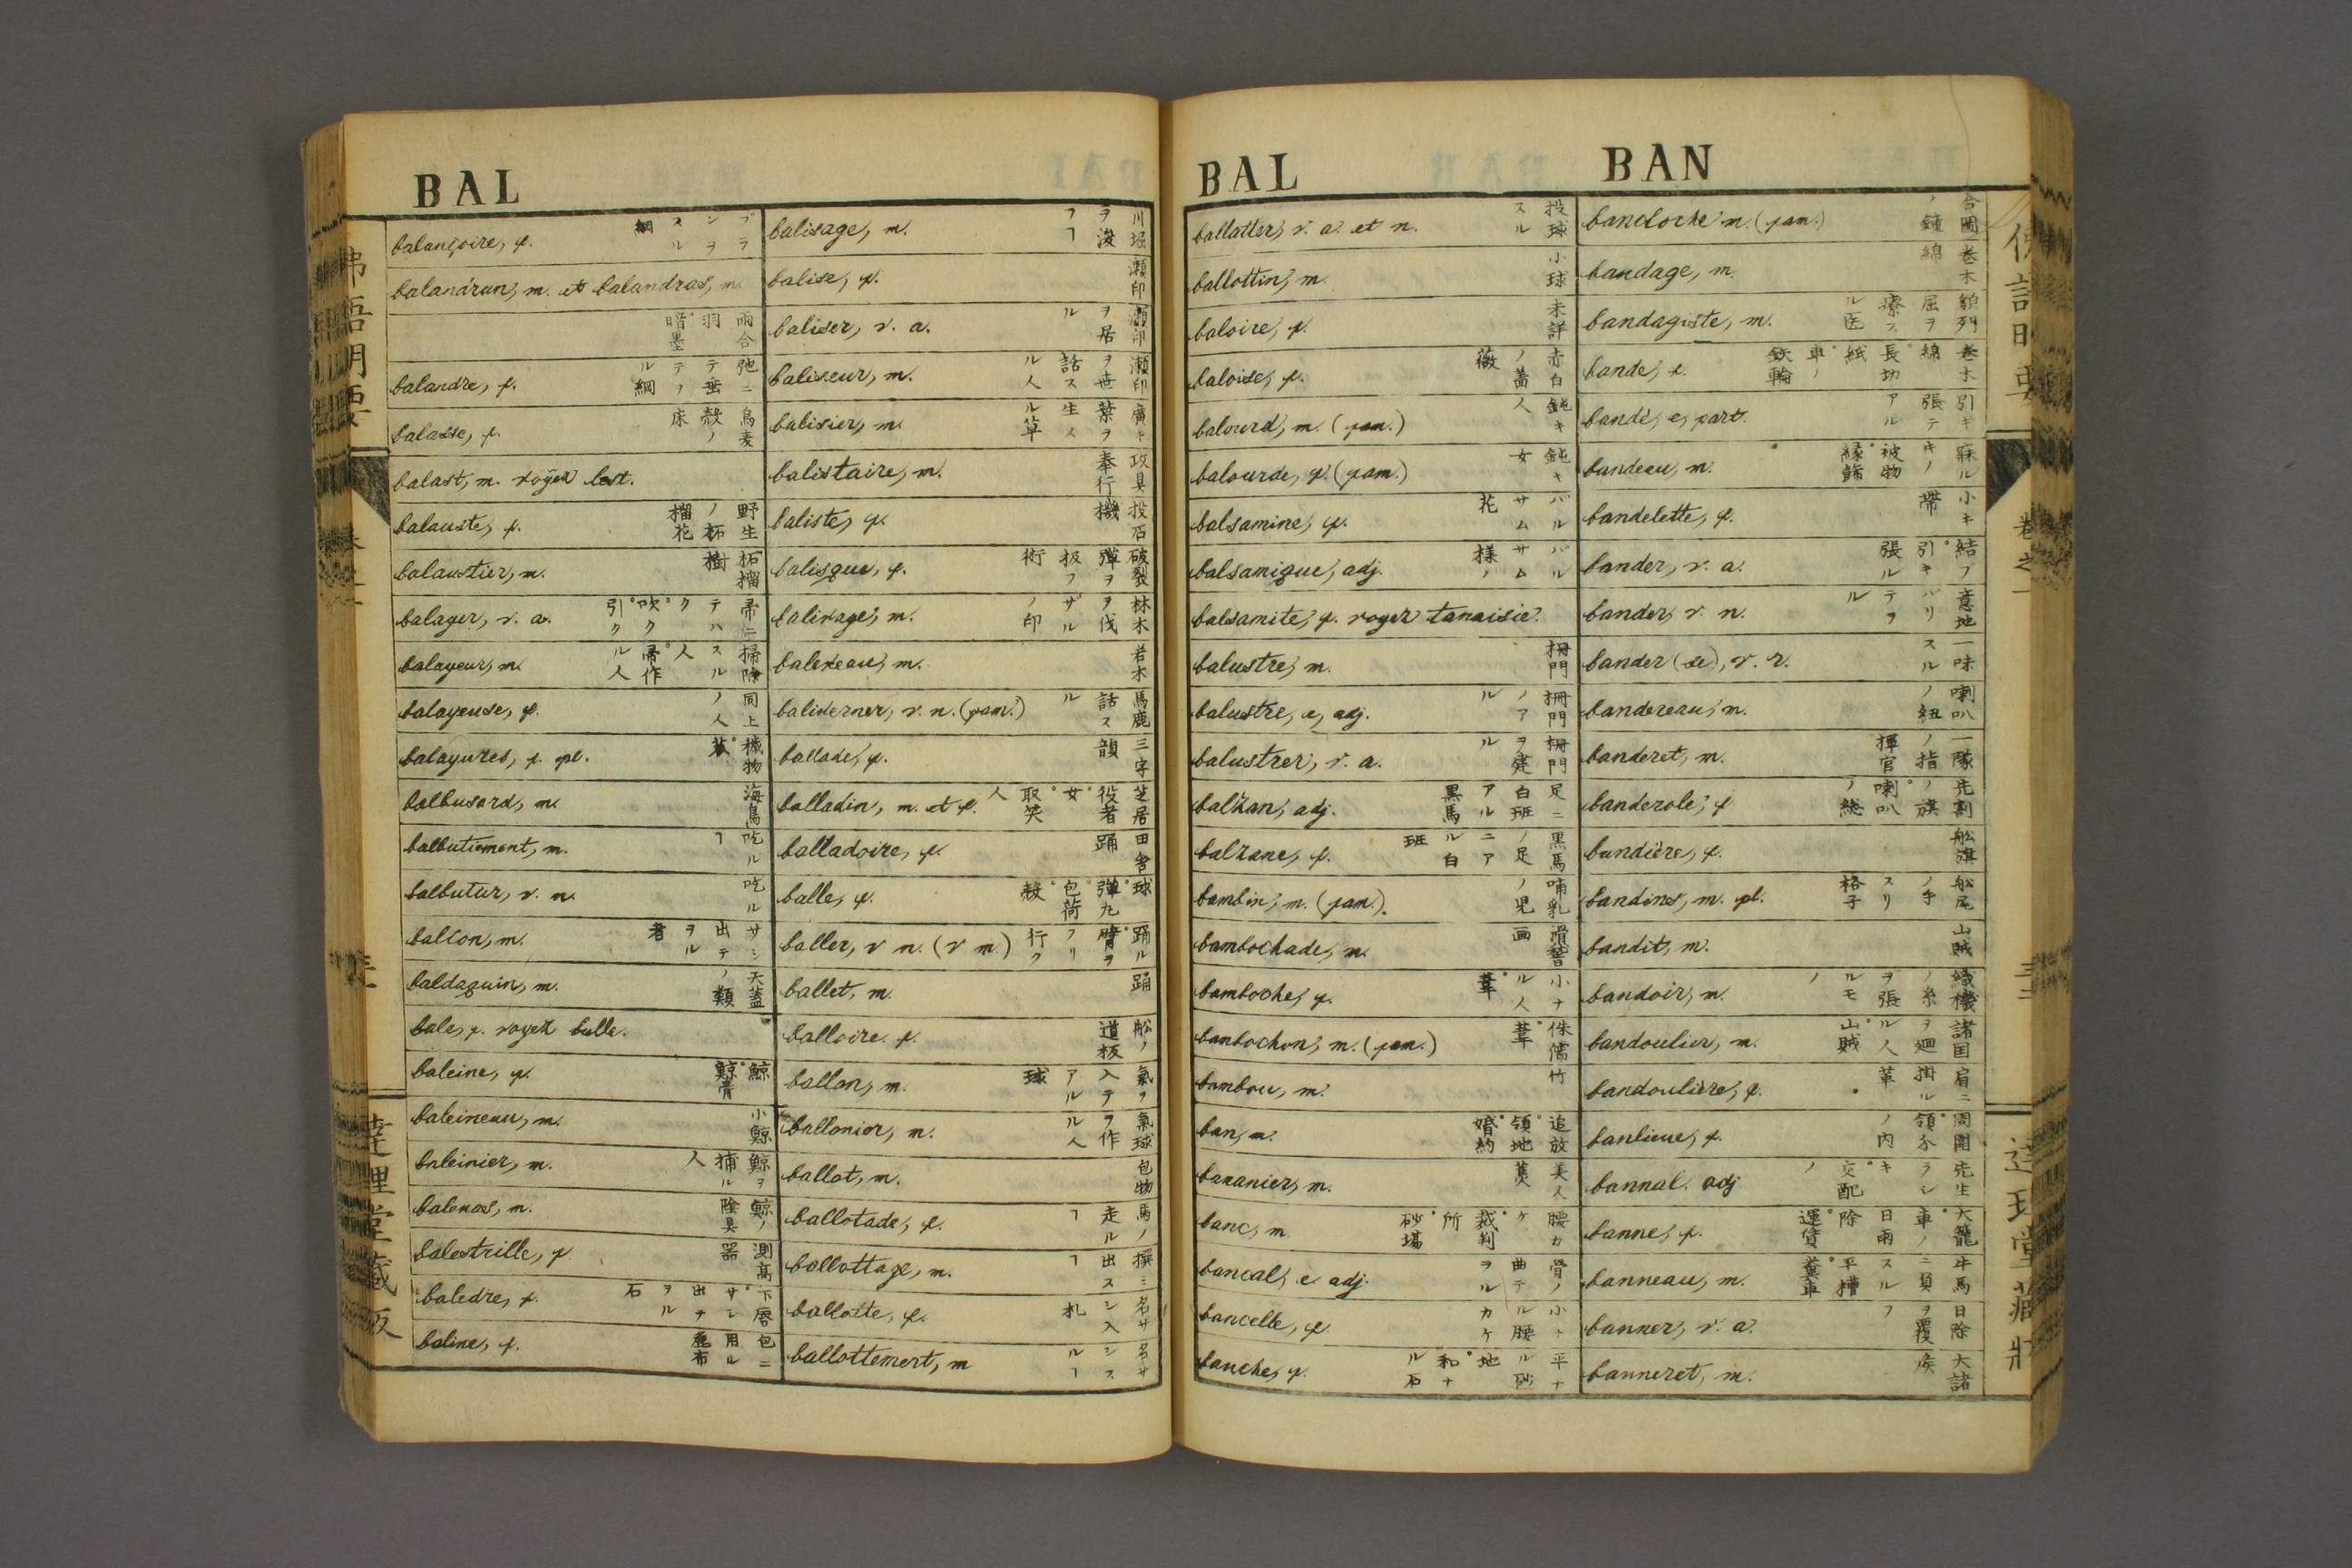 BAL
balançoire, f. ブランスヲル綱
balandran, m. et balandras, m.
雨合羽°暗墨
balandre, f. 弛ニテ垂テヲル綱
balasse, f. 烏麦殻ノ床
balast, m. voyez lest.
balauste, f. 野生ノ柘榴花
balaustier, m. 柘榴樹
balayer, v. a. 帚ニテハク°吹ク°引ク
balayeur, m. 掃除スル人°帚作ル人
balayeuse, f. 同上ノ人
balayures, f. pl. 穢物
balbusard, m. 海鳥
balbutiement, m. 吃ルヿ
balbutier, v. n. 吃ル
balcon, m. サシ出テヲル者
baldaquin, m. 天蓋ノ類
bale, f. voyez balle.
baleine, f. 鯨°鯨骨
baleineau, m. 小鯨
baleinier, m. 鯨ヲ捕ル人
balenas, m. 鯨ノ陰具
balestrille, f. 測高器
balèdre, f.
baline, f. 包ニ用ル麁布
balisage, m. 川堀ヲ浚フヿ
balise, f. 瀬印
baliser, v. a. 瀬印ヲ居ル
baliseur, m. 瀬印ヲ世話スル人
balisier, m. 廣キ葉ヲ生スル草
balistaire, m. 攻具奉行
baliste, f. 投石機
balisque, f. 破裂彈ヲ扱フ術
balivage, m. 林木ヲ伐ザルノ印
baliveau, m. 若木
baliverner, v. n. (fam.) 馬鹿話スル
ballade, f. 三字韻
balladin, m. et f. 芝居役者°女°取笑人
balladoire, f. 田舎踊
balle, f. 球°彈丸°包荷°殻
baller, v. n. (v. m.) 踊ル°臂ヲフリ行ク
ballet, m. 踊
balloire, f. 舩ノ道板
ballon, m. 氣ヲ入テアル球
ballonier, m. 氣球ヲ作ル人
ballot, m. 包物
ballotade, f. 馬ノ走ルヿ
ballottage, m. 撰ミ出スヿ
ballotte, f. 名サシ入札
ballottement, m 名サシスルヿ
BAL BAN
ballotter, v. a. et n. 投球スル
ballottin, m. 小球
baloire, f. 未詳
baloise, f. 赤白ノ薔薇
balourd, m. (fam.) 鈍キ人
balourde, f. (fam.) 鈍キ女
balsamine, f. バルサム花
balsamique, adj. バルサム様ノ
balsamite, f. voyez tanaisie.
balustre, m. 柵門
balustre, e, adj. 柵門ノアル
balustrer, v. a. 柵門ヲ建ル
balzan, adj. 足ニ白班アル黒馬
balzane, f. 黒馬ノ足ニアル白班
bambin, m. (fam.). 哺乳ノ児
bambochade, m. 滑稽画
bamboche, f. 小ナル人°葦
bambochon, m. (fam.) 侏儒°葦
bambou, m. 竹
ban, m. 追放°領地°婚約
bananier, m. 美人蕉
banc, m. 腰カケ°裁判所°砂場
bancal, e adj. 骨ノ曲テヲル
bancelle, f. 小ナル腰カケ
banche, f. 平ナル砂地°和ナル石
bancloche m. (fam.) 合圖ノ鐘
bandage, m. 巻木綿
bandagiste, m. 屈ヲ療スル医
bande, f. 巻木綿°長切紙°車ノ鉄輪
bandé, e, part. 引キ張テアル
bandeau, m. 寐ルキノ被物°縁飾
bandelette, f. 小キ帯
bander, v. a. 結フ°引キ張ル
bander, v. n. 意地バリテヲル
bander (se), v. r. 一味スル
bandereau, m. 喇叭ノ紐
banderet, m. 一隊ノ指揮官
banderole, f 先割ノ旗°喇叭ノ総
bandière, f. 舩旗
bandins, m. pl. 舩尾ノ手スリ格子
bandit, m. 山賊
bandoir, m. 織機ノ糸ヲ張ルモノ
bandoulier, m. 諸国ヲ廻ル人°山賊
bandoulière, f. 肩ニ掛ル革
banlieue, f. 周圍°領分ノ内
bannal. adj
banne, f. 大籠°車ノ日雨除°運賃
banneau, m. 牛馬ニ負スル平槽°糞車
banner, v. a. 日除ヲ覆フ
banneret, m. 大諸侯
佛語明要 卷之一 達理堂藏版